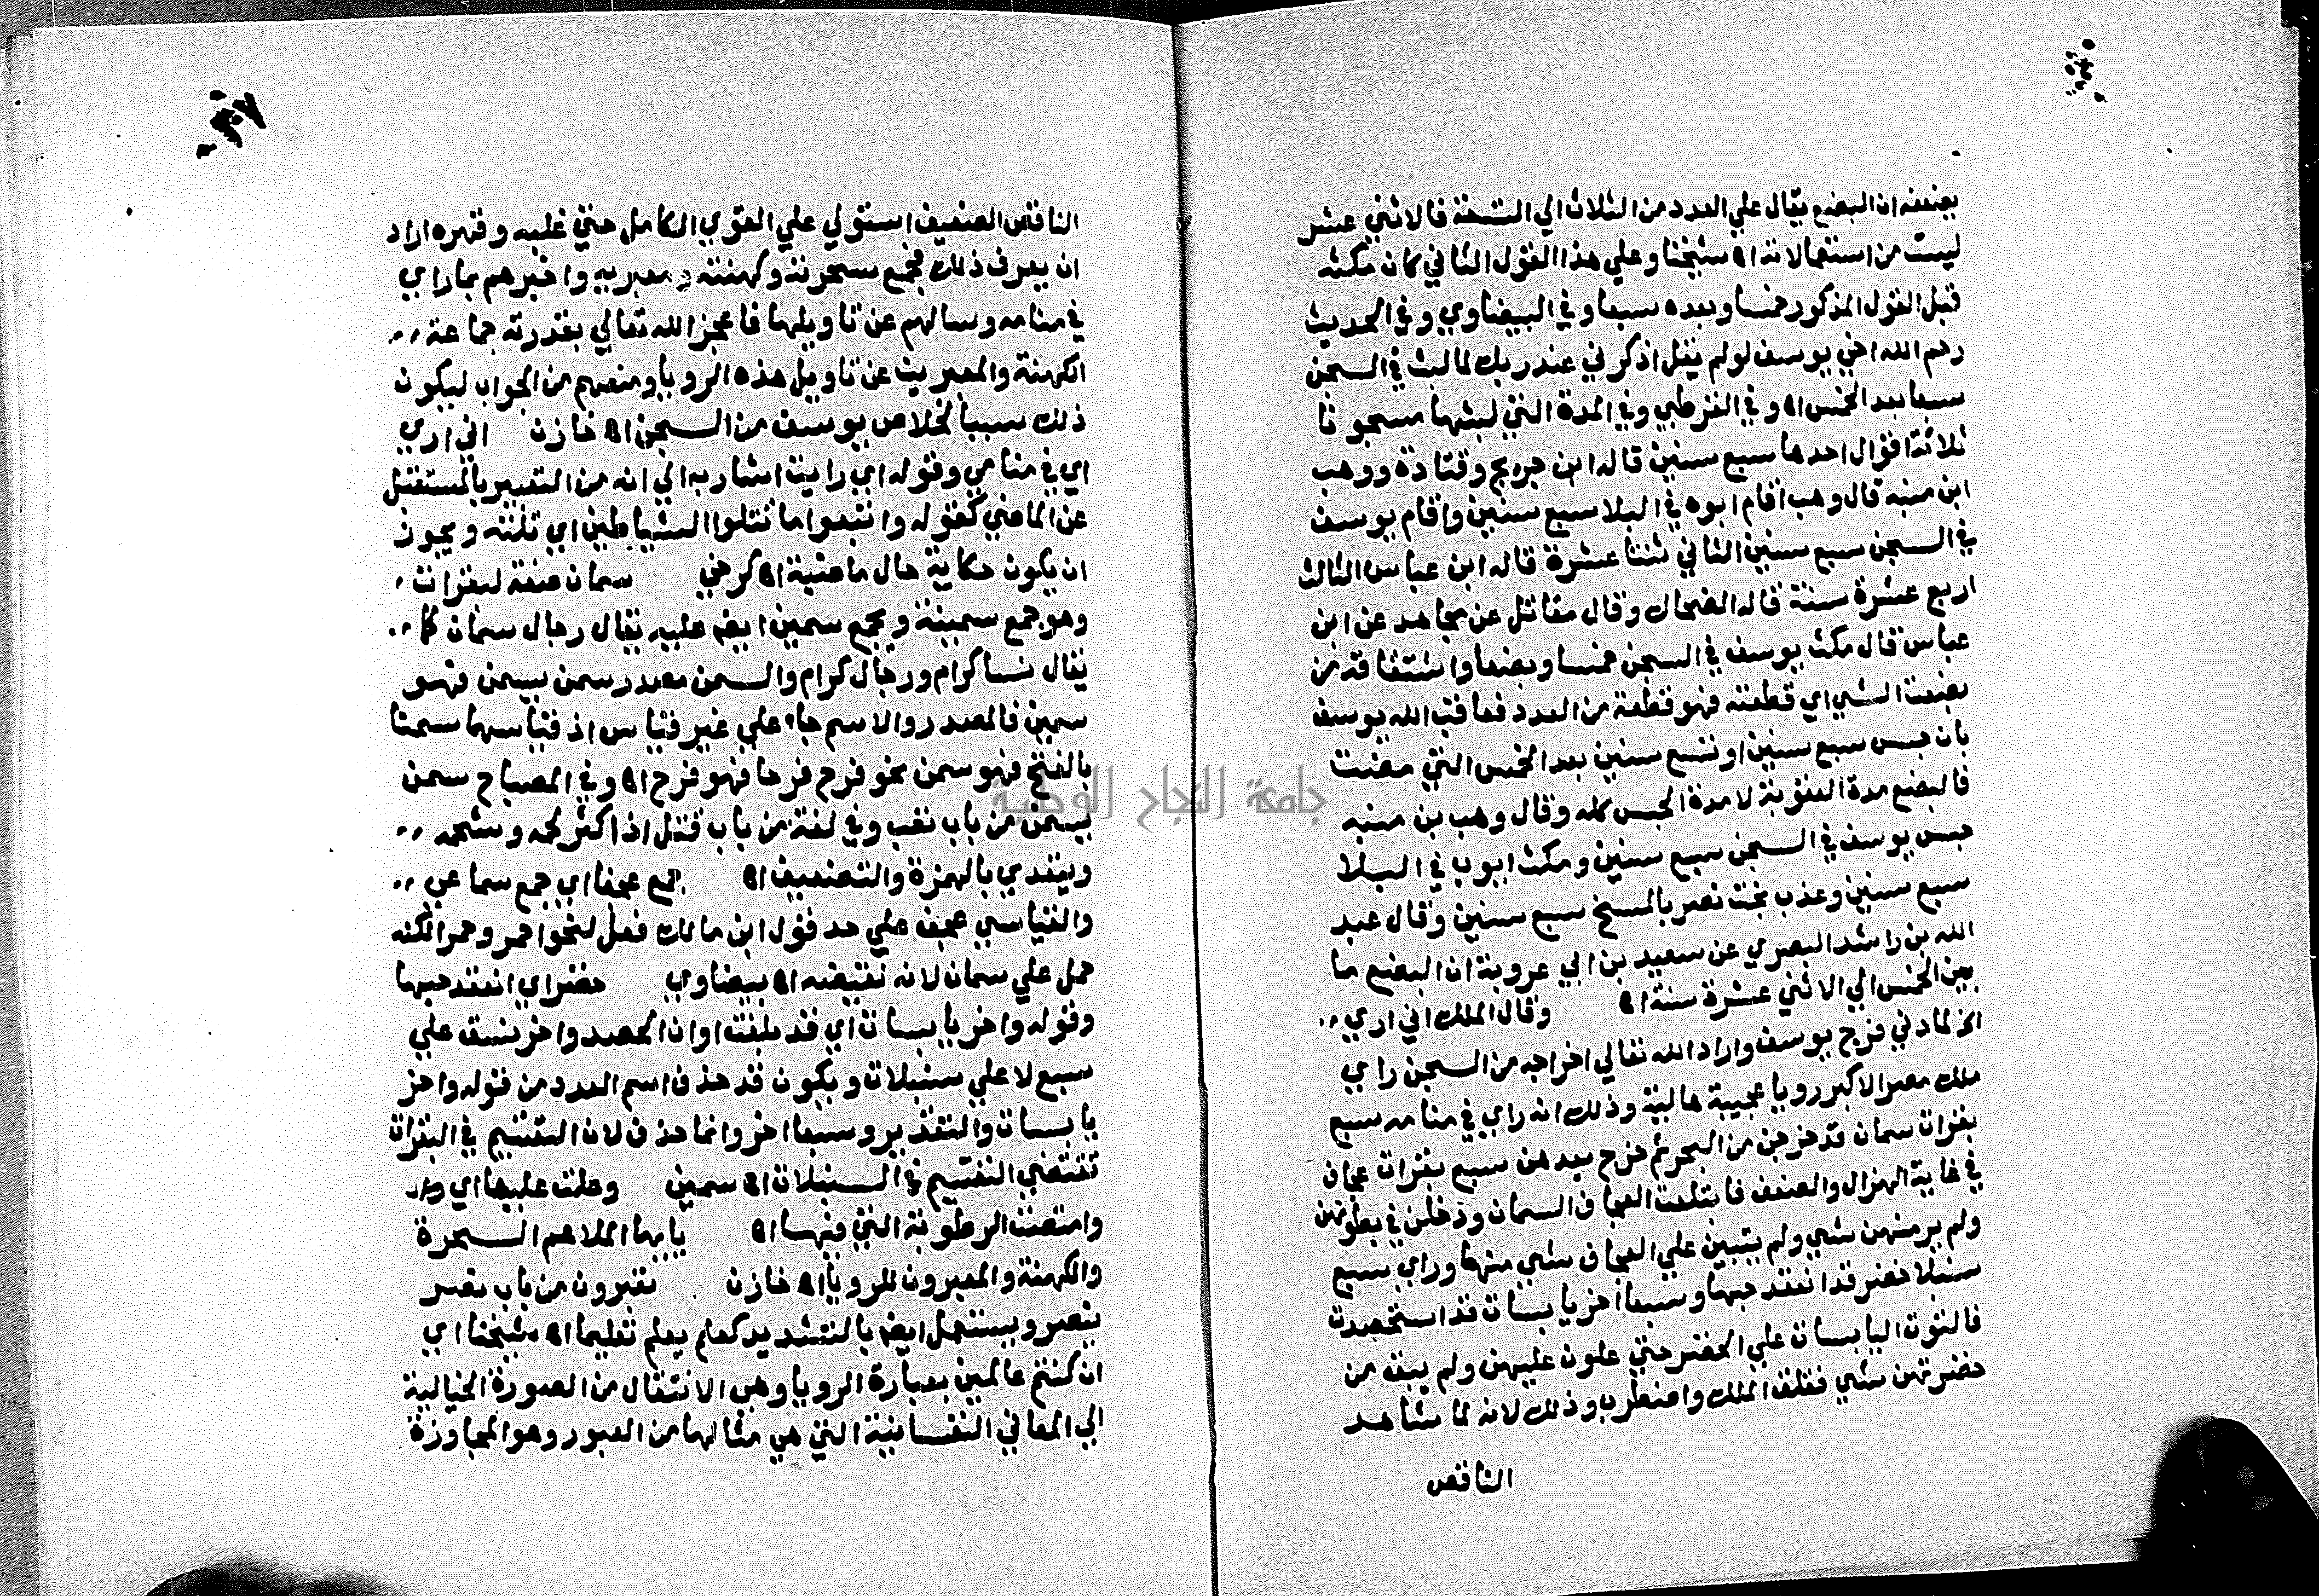 بضعفه ان البضع يقال علي العدد من الثلاث الي التسعة فالاثني عشر
ليست من استعمالاته اه شيخنا وعلي هذا القول الثاني كان مكثه
قبل القول المذكور خمسا وبعده سبعا وفي البيضاوي وفي الحديث
رحم الله اخي يوسف لو لم يقل اذكرني عند ربك لما لبث في السجن
سبعا بعد الخمس اه وفي القرطبي وفي المدة التي لبثها مسجونا
ثلاثة اقوال احدها سبع سنين قاله ابن جريج وقتادة ووهب
ابن منبه قال وهب اقام ايوب في البلا سبع سنين واقام يوسف
في السجن سبع سنين الثاني ثنتا عشرة قاله ابن عباس الثالث
اربع عشرة سنة قاله الضحاك وقال مقاتل عن مجاهد عن ابن
عباس قال مكث يوسف في السجن خمسا وبضعا واشتقاقه من
بضعت الشي اي قطعته فهو قطعة من العدد فعاقب الله يوسف
بان حبس سبع سنين او تسع سنين بعد الخمس التي مضت
فالبضع مدة العقوبة لا مدة الحبس كله وقال وهب بن منبه
حبس يوسف في السجن سبع سنين ومكث ايوب في البلا
سبع سنين وعذب بخت نصر بالمسخ سبع سنين وقال عبد
الله بن راشد البصري عن سعيد بن ابي عروبة ان البضع ما
بين الخمس الي الاثني عشرة سنة اه وقال الملك اني اري
الخ لما دني فرج يوسف واراد الله تعالي اخراجه من السجن راي
ملك مصر الاكبر رويا عجيبة هالته وذلك انه راي في منامه سبع
بقرات سمان قد خرجن من البحر ثم خرج بعدهن سبع بقرات عجاف
في غاية الهزال والضعف فابتلعت العجاف السمان ودخلن في بطونهن
ولم ير منهن شي ولم يتبين علي العجاف شي منها وراي سبع
سنبلا خضر قد انعقد حبها وسبعا اخر يابسات قد استحصدت
فالتوت اليابسات علي الخضر حتي علون عليهن ولم يبق من
خضرتهن شي فقلق الملك واضطرب وذلك لانه لما شاهد
الناقص
الناقص الضعيف استولي علي القوي الكامل حتي غلبه وقهره اراد
ان يعرف ذلك فجمع سحرته وكهنته ومعبريه واخبرهم بما راي
في منامه وسالهم عن تاويلها فاعجز الله تعالي بقدرته جماعة
الكهنة والمعبرين عن تاويل هذه الرويا ومنعهم من الجواب ليكون
ذلك سببا لخلاص يوسف من السجن اه خازن اني اري
اي في منامي وقوله اي رايت اشار به الي انه من التعبير بالمستقبل
عن الماضي كقوله واتبعوا ما تتلوا الشياطين اي تلته ويجوز
ان يكون حكاية حال ماضية اه كرخي سمان صفة لبقرات
وهو جمع سمينة ويجمع سمين ايضم عليه يقال رجال سمان كما
يقال نسا كرام ورجال كرام والسمن مصدر سمن يسمن فهو
سمين فالمصدر والاسم جاء علي غير قياس اذ قياسهما سمنا
بالفتح فهو سمن نحو فرح فرحا فهو فرح اه وفي المصباح سمن
يسمن من باب تعب وفي لغة من باب قتل اذا كثر لحمه وشحمه
ويتعدي بالهمزة والتضعيف اه جمع عجفا اي جمع سماعي
والقياسي عجف علي حد قول ابن مالك فعل لنحو احمر وحمرا لكنه
حمل علي سمان لانه نقيضه اه بيضاوي خضر اي انعقد حبها
وقوله واخر يابسات اي قد بلغت اوان الحصد واخر نسق علي
سبع لا علي سنبلات ويكون قد حذف اسم العدد من قوله واخر
يابسات والتقدير وسبعا اخر وانما حذف لان التقسيم في البقرات
تقتضي التقسيم في السنبلات اه سمين وعلت عليها اي
وامتصت الرطوبة التي فيها اه يايها الملا هم السحرة
والكهنة والمعبرون للرويا اه خازن تعبرون من باب نصر
ينصر ويستعمل ايضم بالتشديد كعلم يعلم تعليما اه شيخنا اي
ان كنتم عالمين بعبارة الرويا وهي الانتقال من الصورة الخيالية
الي المعاني النفسانية التي هي مثالها من العبور وهو المجاوزة
جامعة النجاح الوطنية